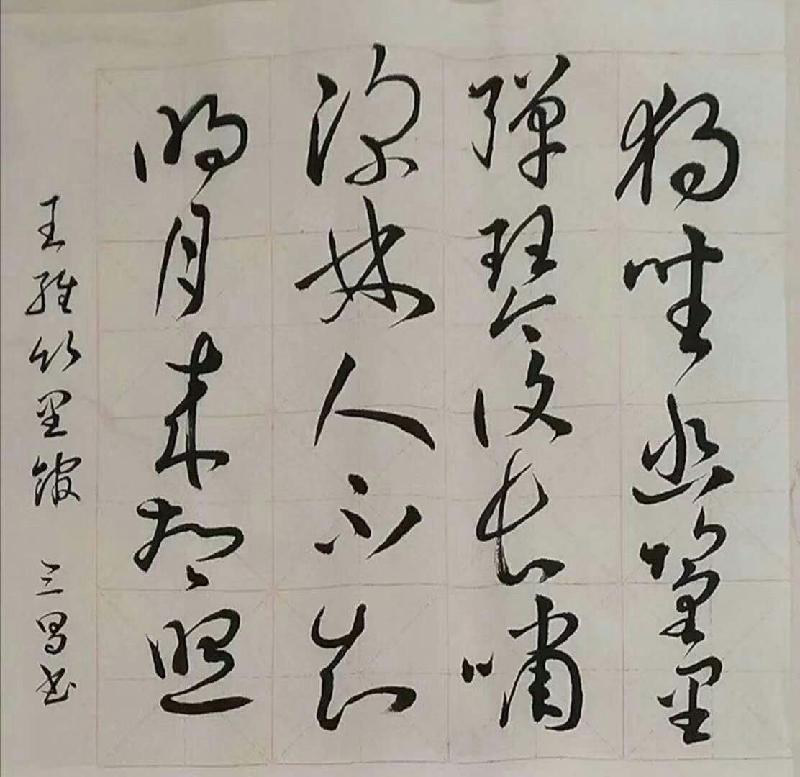 独坐幽篁里
弹琴复长啸
深林人不知
明月来相照
王维竹里馆 三昌书